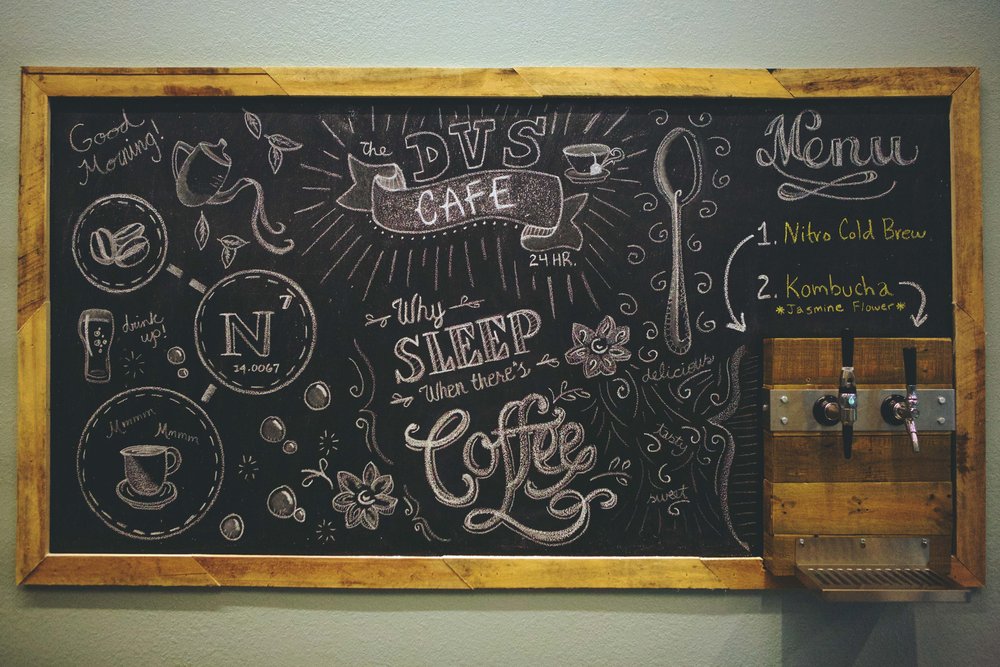 Good
Morning!
The
DVS
CAFE
24 HR.
Menu
1. Nitro Cold Brew
2. Kombucha
*Jasmine Flower*
7
N
14.0067
drink
up!
Mmmm
Mmmm
Why
SLEEP
When there's
Coffee
delicious
tasty
sweet